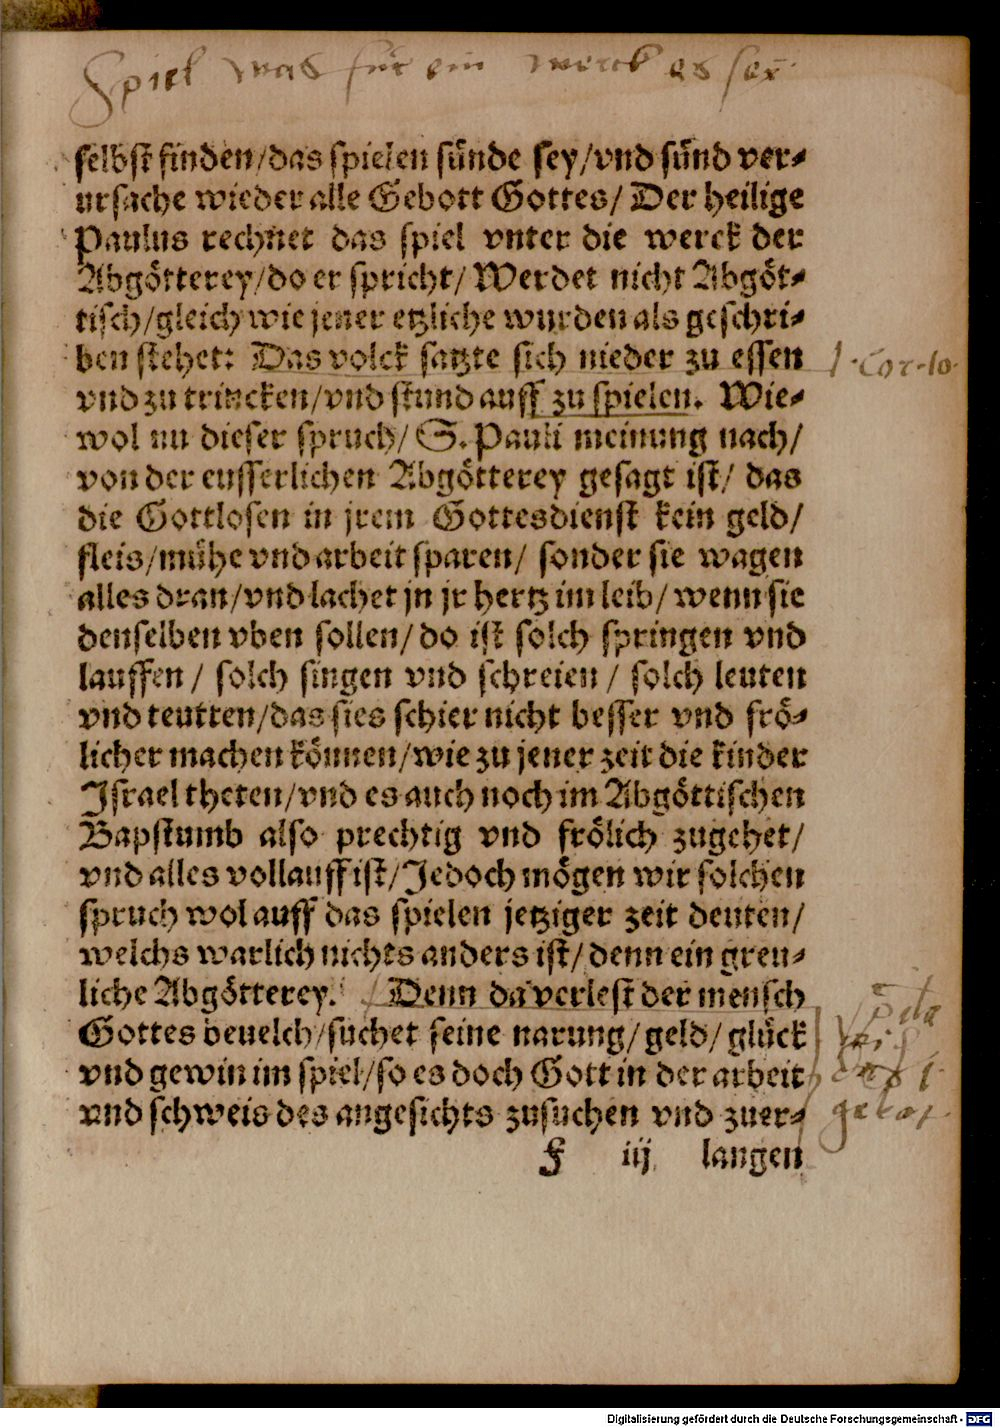 Spiel was für ein werck es sey.
selbst finden/das spielen sünde sey/vnd sünd ver-
ursache wieder alle Gebott Gottes/ Der heilige
Paulus rechnet das spiel vnter die werck der
Abgötterey/do er spricht/ Werdet nicht Abgöt-
tisch/gleich wie jener etzliche wurden als geschri-
ben stehet: Das volck satzte sich nieder zu essen
1. Cor. 10.
vnd zu trincken/vnd stund auff zu spielen. Wie-
wol nu dieser spruch/ S. Pauli meinung nach/
von der eusserlichen Abgötterey gesagt ist/ das
die Gottlosen in jrem Gottesdienst kein geld/
fleis/mühe vnd arbeit sparen/ sonder sie wagen
alles dran/vnd lachet jn jr hertz im leib/ wenn sie
denselben vben sollen/ do ist solch springen vnd
lauffen/ solch singen vnd schreien/ solch leuten
vnd teutten/das sies schier nicht besser vnd frö-
licher machen können/wie zu jener zeit die kinder
Israel theten/vnd es auch noch im Abgöttischen
Bapstumb also prechtig vnd frölich zugehet/
vnd alles vollauff ist/Jedoch mögen wir solchen
spruch wol auff das spielen jetziger zeit deuten/
welchs warlich nichts anders ist/ denn ein greu-
liche Abgötterey. Denn da verlest der mensch
Gottes beuelch/suchet seine narung/ geld/ glück
vnd gewin im spiel/so es doch Gott in der arbeit
vnd schweis des angesichts zusuchen vnd zuer-
F iij langen
Digitalisierung gefördert durch die Deutsche Forschungsgemeinschaft - DFG